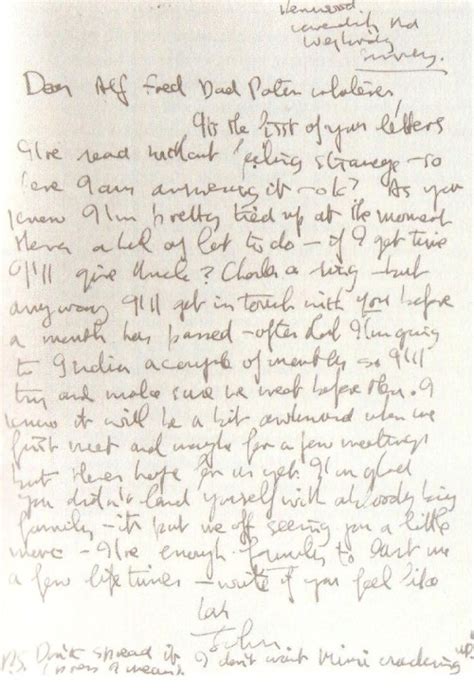 Kenwood
Cavendish Rd
Weybridge
Surrey.
Dear Alf Fred Dad Pater whatever,
It's the first of your letters
I've read without feeling strange – so
here I am answering it – ok? As you
know I'm pretty tied up at the moment
theres a hell of lot to do – if I get time
I'll give Uncle? Charles a ring – but
anyway I'll get in touch with you before
a month has passed – after that I'm going
to India a couple of months so I'll
try and make sure we meet before then. I
know it will be a bit awkward when we
first meet and maybe for a few meetings
but theres hope for us yet. I'm glad
you didn't land yourself with a bloody big
family – it's put me off seeing you a little
more – I've enough family to last me
a few life times – write if you feel like
John
P.S. Don't spread it
(press I mean) I don't want Mimi cracking up"